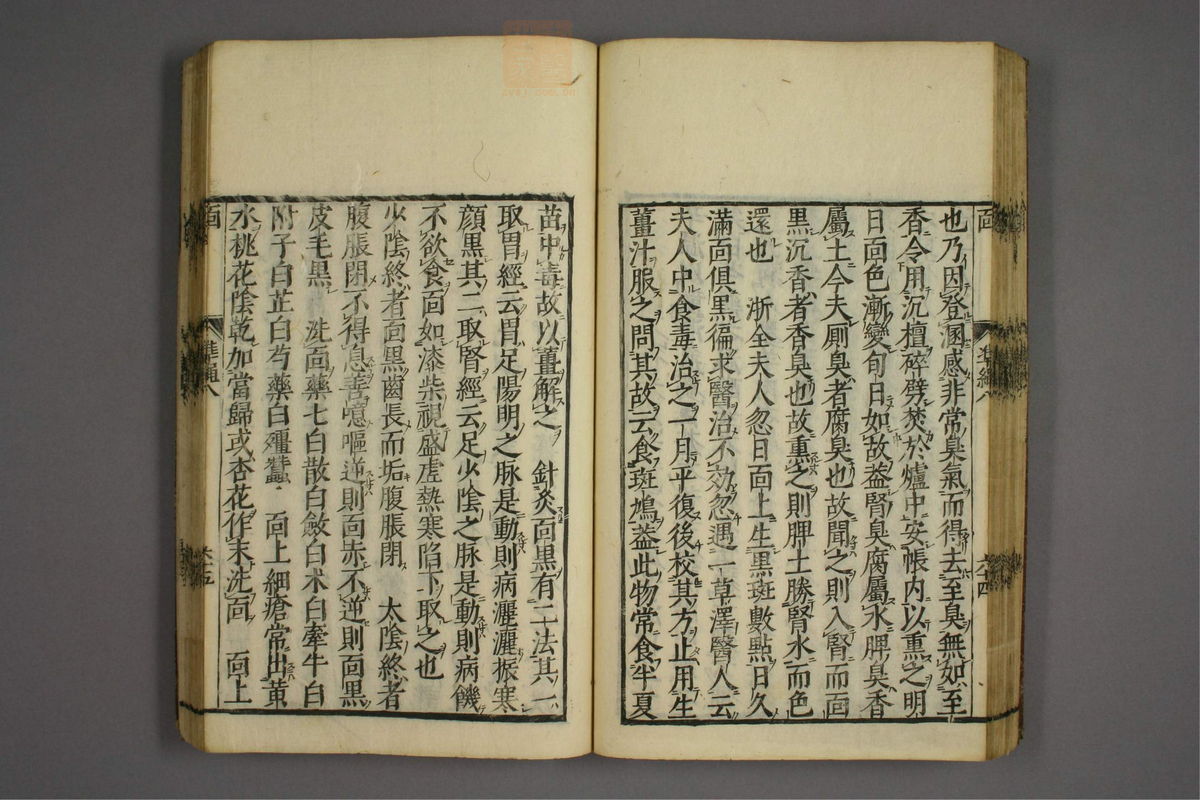 也乃因登溷感非常臭氣而得去至臭無如至
香令用沉檀碎劈焚於爐中安帳内以熏之明
日面色漸變旬日如故蓋腎臭腐屬水脾臭香
屬土今夫厠臭者腐臭也故聞之則入腎而面
黒沉香者香臭也故熏之則脾土勝腎水而色
還也　浙全夫人忽日面上生黒斑數點日久
滿面俱黒徧求醫治不効忽遇一草澤醫人云
夫人中食毒治之一月平復後校其方止用生
薑汁服之問其故云食斑鳩蓋此物常食半夏
苗中毒故以薑解之　針灸面黒有二法其一
取胃經云胃足陽明之脉是動則病灑灑振寒
顔黒其二取腎經云足少陰之脉是動則病饑
不欲食面如漆柴視盛虚熱寒陷下取之也
少陰終者面黒齒長而垢腹脹閉　太陰終者
腹脹閉不得息善噫嘔逆則面赤不逆則面黒
皮毛黒　洗面藥七白散白斂白术白牽牛白
附子白芷白芍藥白殭蠶　面上細瘡常出黄
水桃花陰乾加當歸或杏花作末洗面　面上
面
準繩八
六十四
面
準繩八
六十五